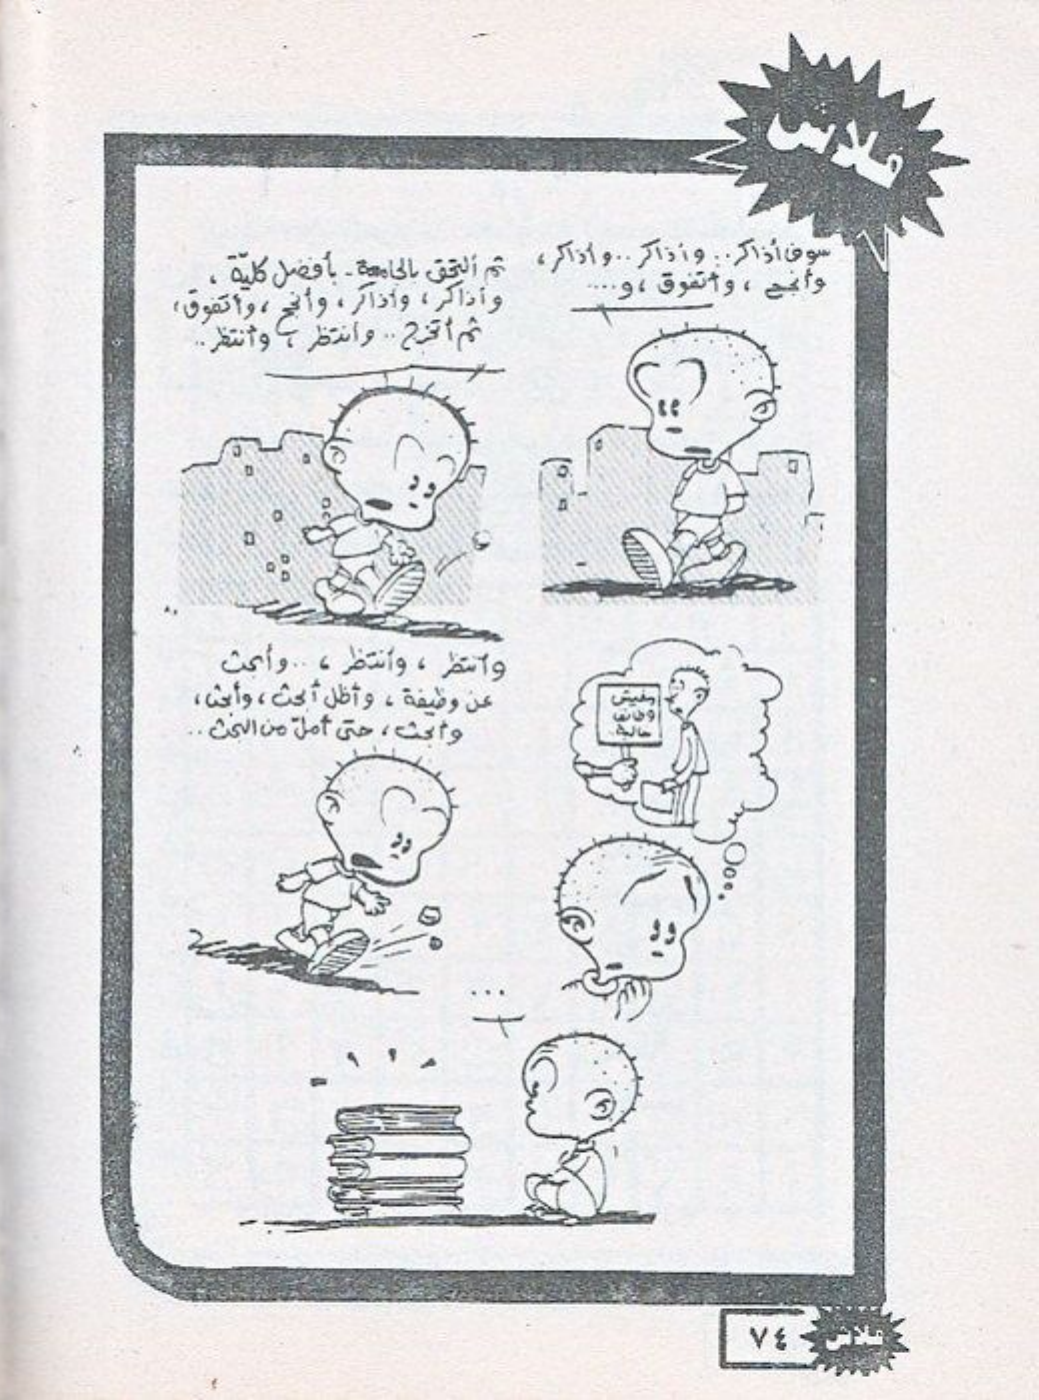 ملاش
سوف أذاكر.. وأذاكر.. وأذاكر،
وأنجح، وأتفوق، و....
ثم ألتحق بالجامعة - بأفضل كليّة،
وأذاكر، وأذاكر، وأنجح، وأتفوق،
ثم أتخرج.. وأنتظر، وأنتظر..
مفيش
وظائف
خالية
وأنتظر، وأنتظر، .. وأبحث
عن وظيفة، وأظل أبحث، وأبحث،
وأبحث، حتى أملّ من البحث..
...
ملاش
٧٤